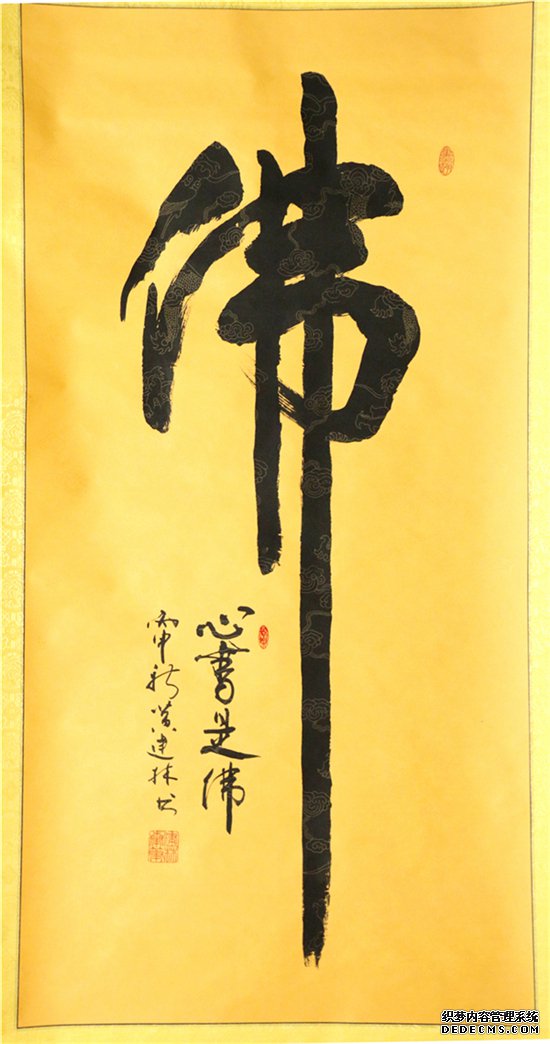 佛
心書是佛
丙申秋黄建林书
织梦内容管理系统
DEDECMS.COM